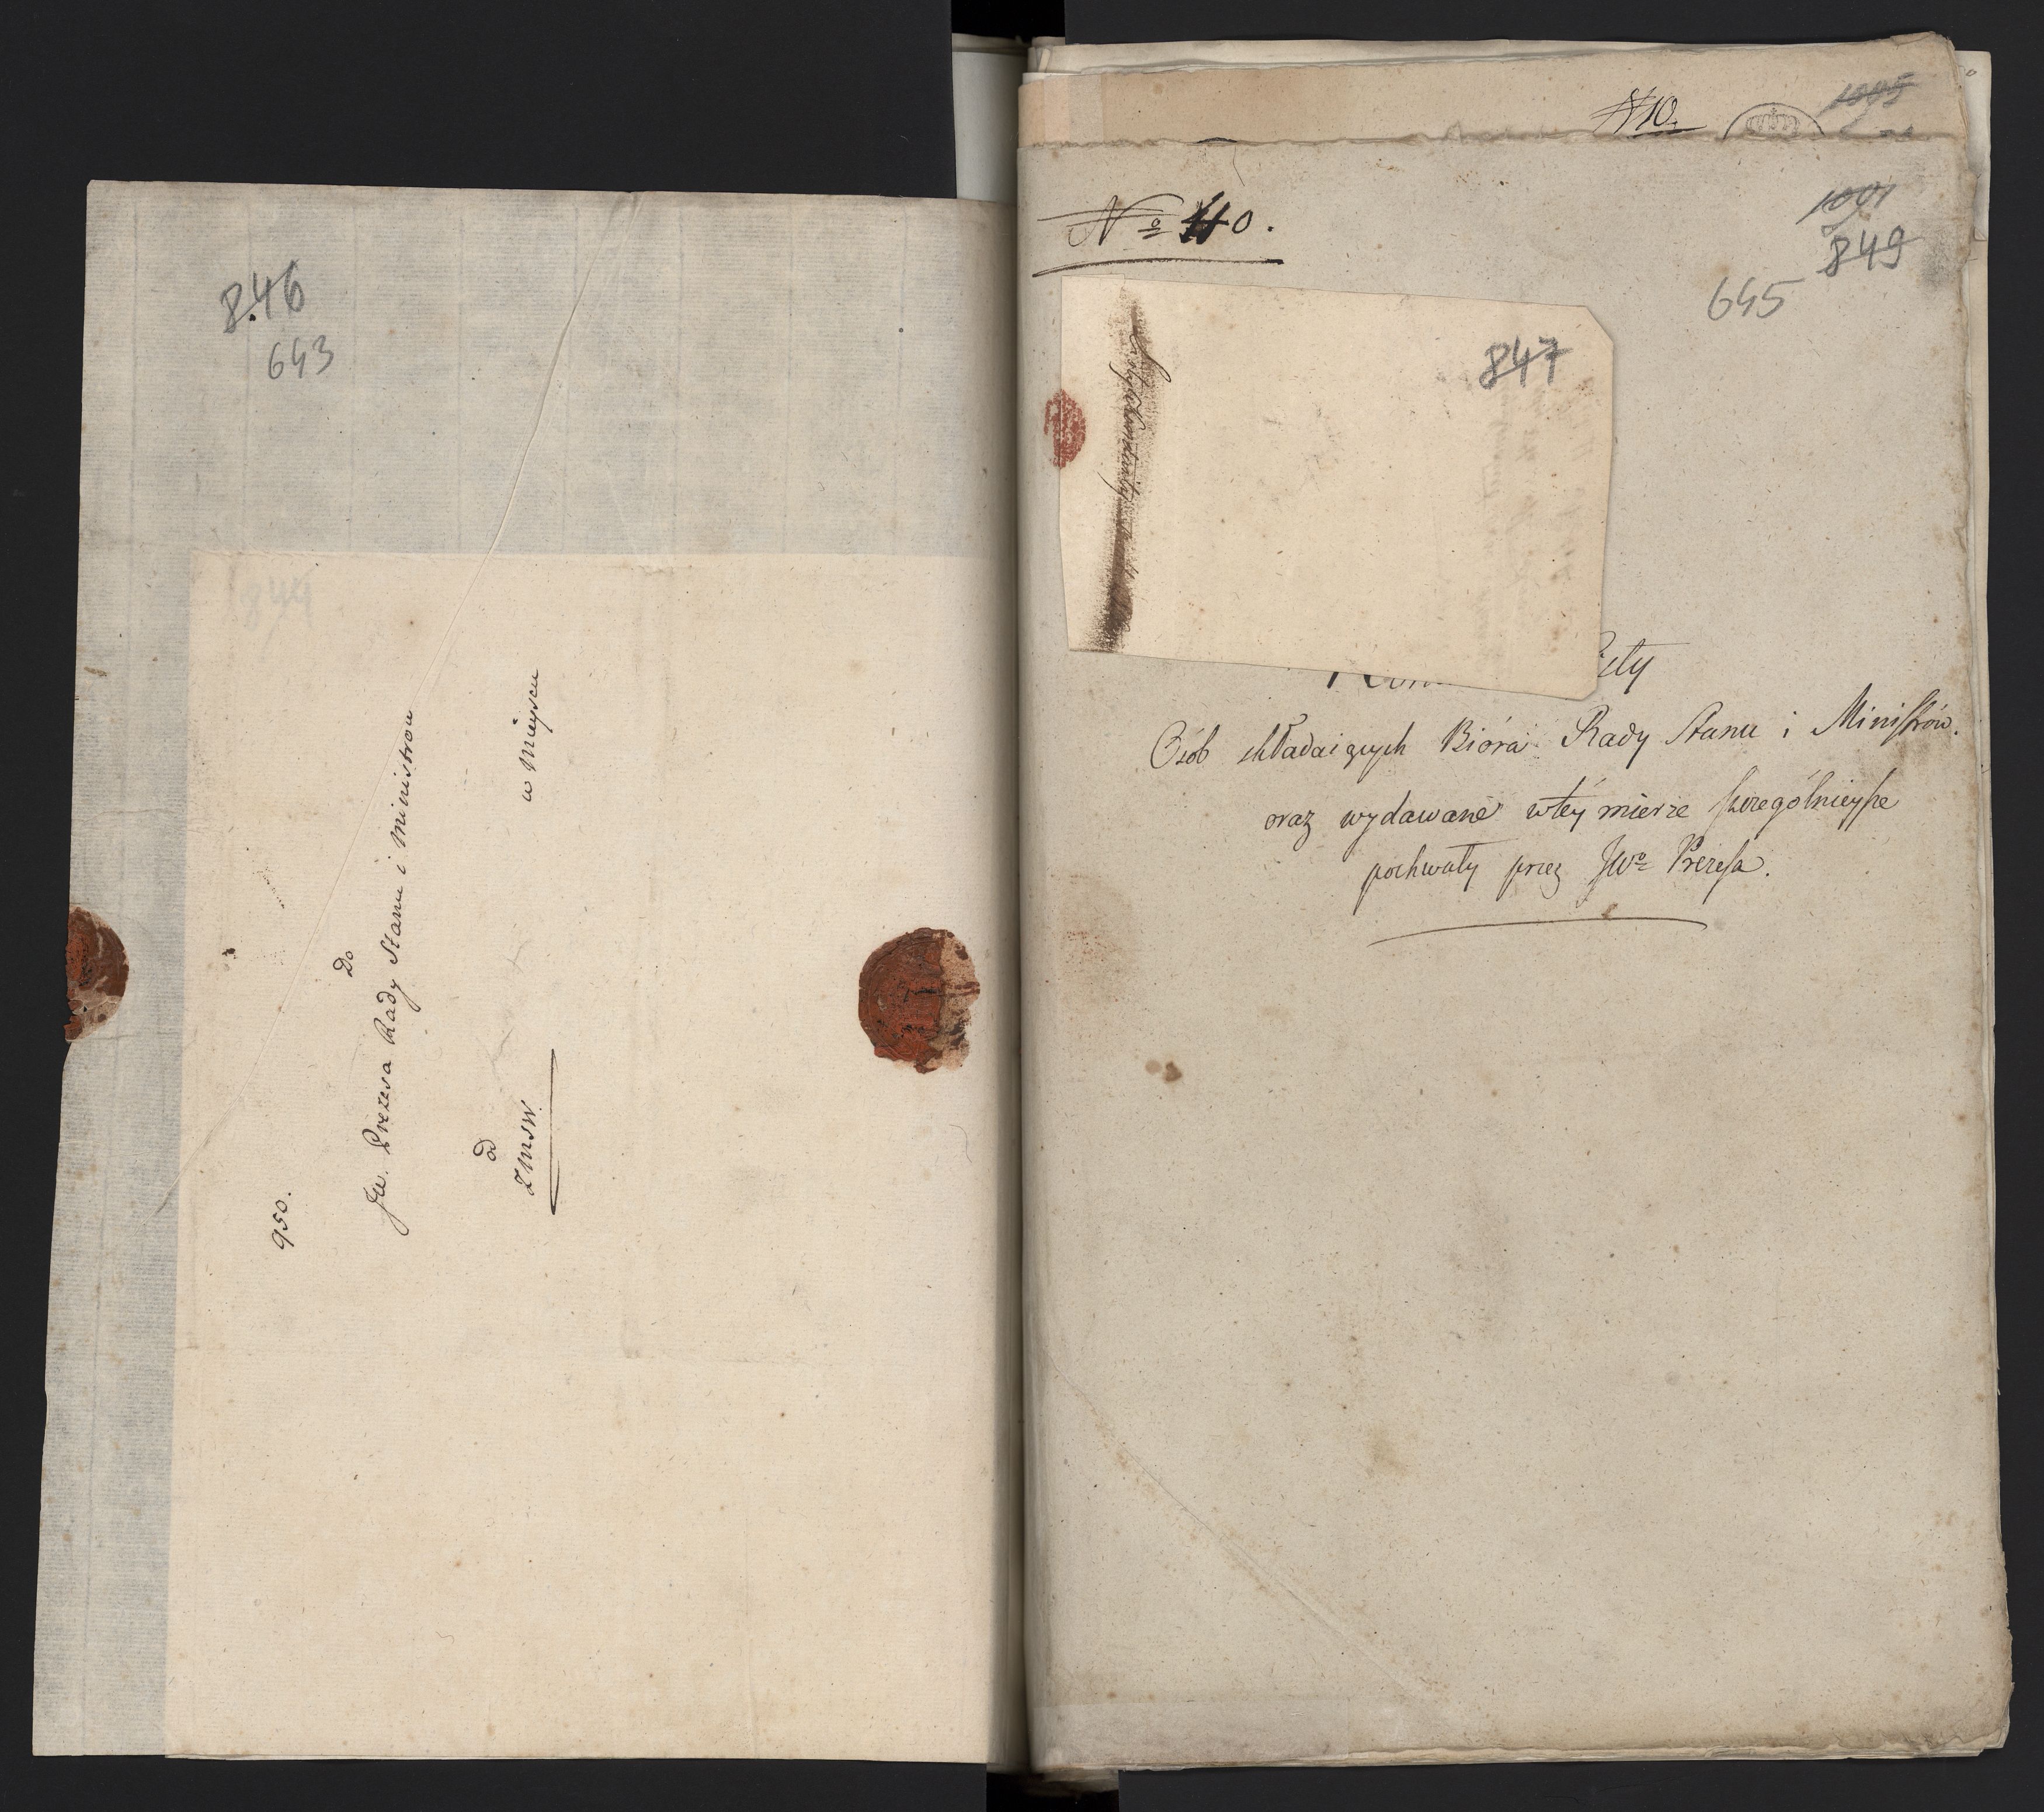 846
643
844
950.
Do
JW. Prezesa Rady Stanu i Ministrow
w Mieyscu
od
ZMSW.
N 10.
1005
No 40.
1001
849
645
847
Osób składaiących Bióra Rady Stanu i Ministrów.
oraz wydawane w tey mierze szczególnieysze
pochwały przez JWo Prezesa.